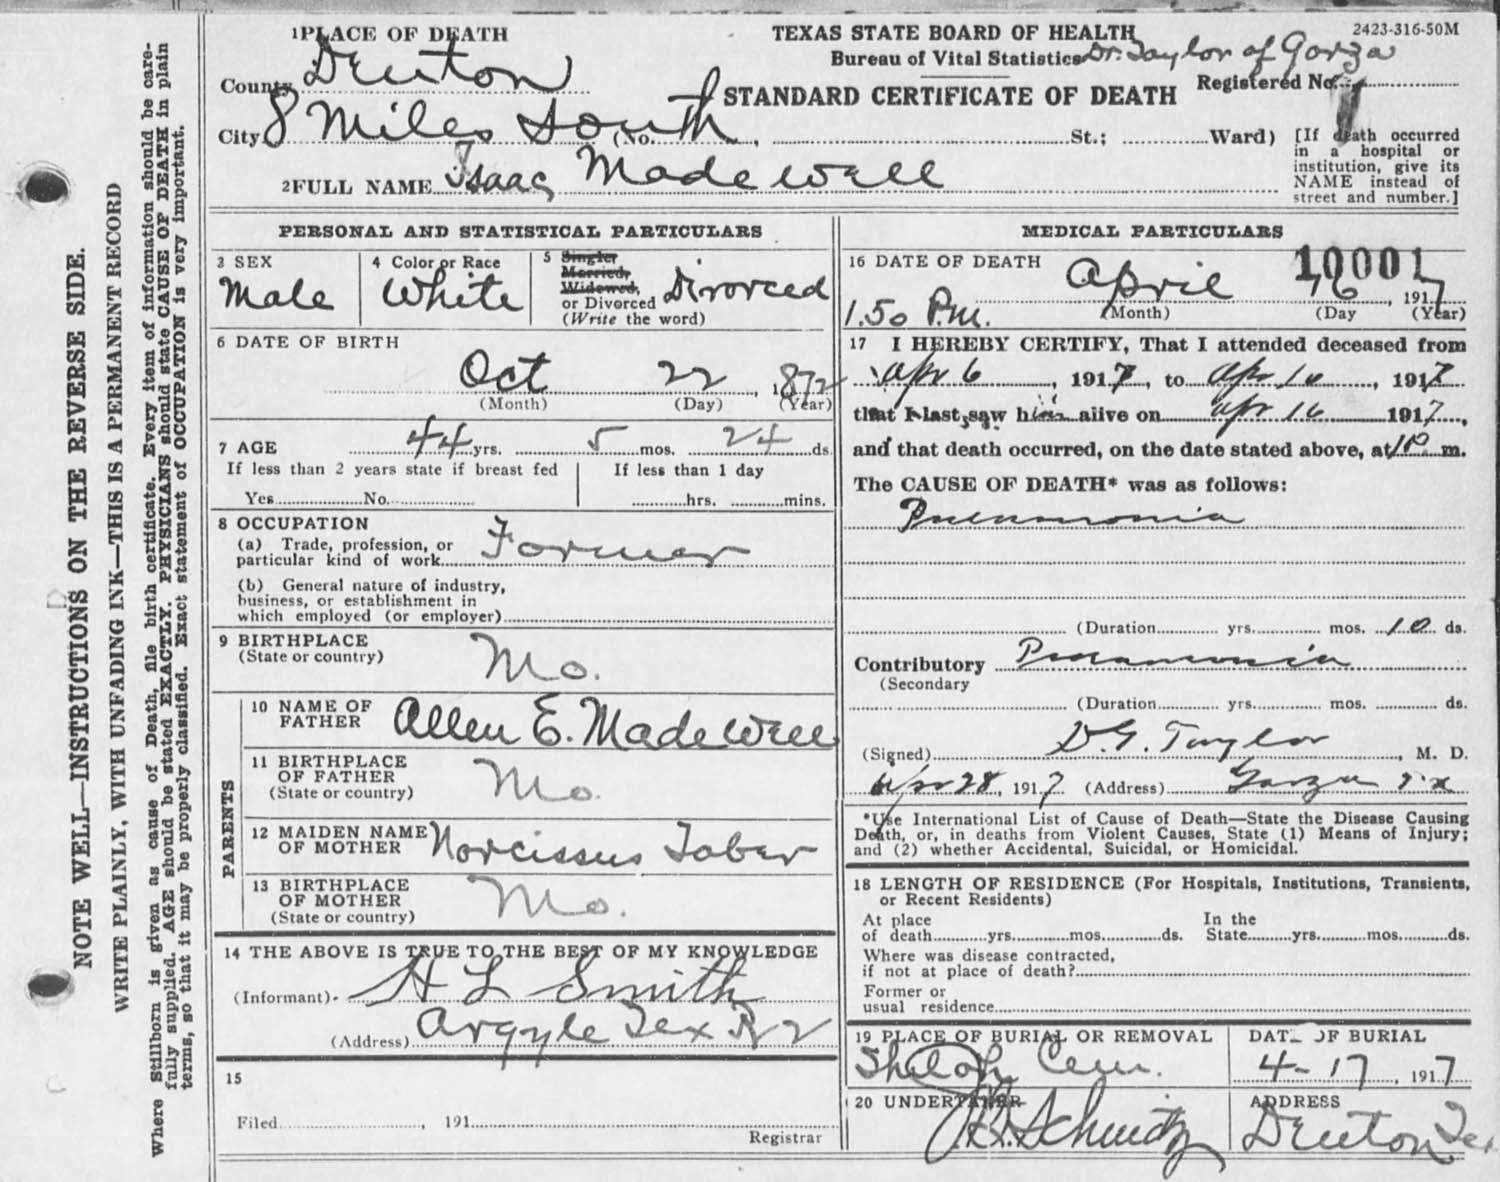 NOTE WELL—INSTRUCTIONS ON THE REVERSE SIDE.
WRITE PLAINLY, WITH UNFADING INK—THIS IS A PERMANENT RECORD
Where Stillborn is given as cause of Death, file birth certificate. Every item of information should be care-
fully supplied. AGE should be stated EXACTLY. PHYSICIANS should state CAUSE OF DEATH in plain
terms, so that it may be properly classified. Exact statement of OCCUPATION is very important.
1 PLACE OF DEATH
TEXAS STATE BOARD OF HEALTH
2423-316-50M
Bureau of Vital Statistics Dr. Taylor of Garza
County Denton
STANDARD CERTIFICATE OF DEATH
Registered No.
City 8 Miles South (No. St.; Ward)
[If death occurred
in a hospital or
institution, give its
NAME instead of
street and number.]
2 FULL NAME Isaac Madewell
PERSONAL AND STATISTICAL PARTICULARS
3 SEX
Male
4 Color or Race
White
5 Single,
Married,
Widowed,
or Divorced Divorced
(Write the word)
6 DATE OF BIRTH
Oct 22, 1872
(Month) (Day) (Year)
7 AGE 44 yrs. 5 mos. 24 ds.
If less than 2 years state if breast fed
Yes No.
If less than 1 day
hrs. mins.
8 OCCUPATION
(a) Trade, profession, or
particular kind of work Farmer
(b) General nature of industry,
business, or establishment in
which employed (or employer)
9 BIRTHPLACE
(State or country) Mo.
PARENTS
10 NAME OF
FATHER Allen E. Madewell
11 BIRTHPLACE
OF FATHER
(State or country) Mo.
12 MAIDEN NAME
OF MOTHER Narcissus Tober
13 BIRTHPLACE
OF MOTHER
(State or country) Mo.
14 THE ABOVE IS TRUE TO THE BEST OF MY KNOWLEDGE
(Informant) H L Smith
(Address) Argyle Tex R 2
15
Filed , 191
Registrar
MEDICAL PARTICULARS
16 DATE OF DEATH
10001
April 16, 1917
1.50 P.M. (Month) (Day (Year)
17 I HEREBY CERTIFY, That I attended deceased from
Apr 6, 1917, to Apr 16, 1917
that I last saw him alive on Apr 16 1917,
and that death occurred, on the date stated above, at m.
The CAUSE OF DEATH* was as follows:
Pneumonia
(Duration yrs. mos. 10 ds.
Contributory Pneumonia
(Secondary
(Duration yrs. mos. ds.
(Signed) D. G. Taylor, M. D.
Apr 28, 1917 (Address) Garza Tx
*Use International List of Cause of Death—State the Disease Causing
Death, or, in deaths from Violent Causes, State (1) Means of Injury;
and (2) whether Accidental, Suicidal, or Homicidal.
18 LENGTH OF RESIDENCE (For Hospitals, Institutions, Transients,
or Recent Residents)
At place
of death yrs. mos. ds.
In the
State yrs. mos. ds.
Where was disease contracted,
if not at place of death?
Former or
usual residence
19 PLACE OF BURIAL OR REMOVAL
Shiloh Cem.
DATE OF BURIAL
4-17, 1917
20 UNDERTAKER
Schmitz
ADDRESS
Denton Tex